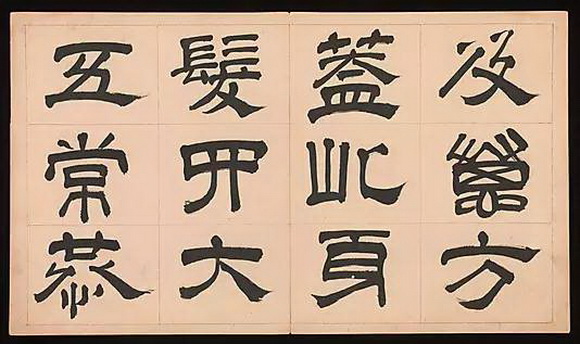 及萬方
蓋此身
髮四大
五常恭